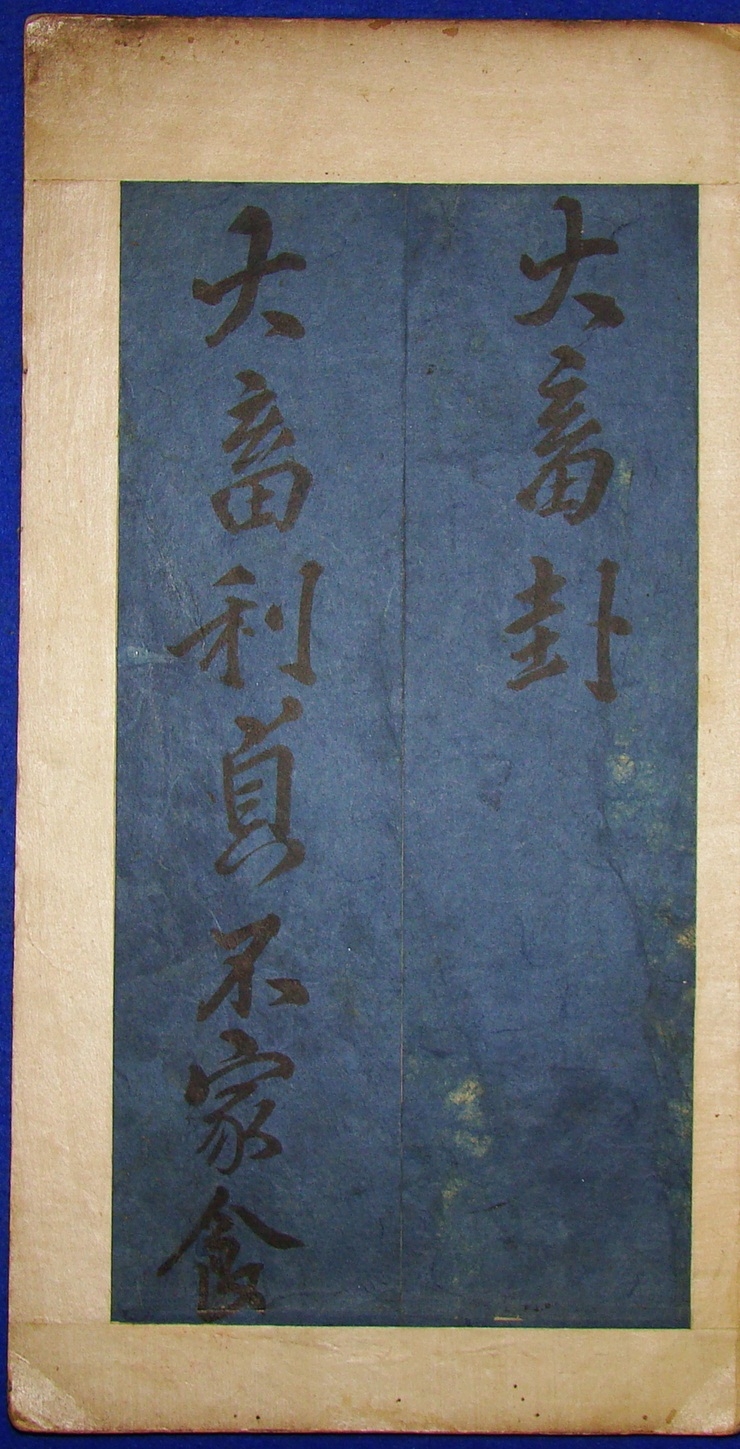 大畜卦
大畜利貞不家食